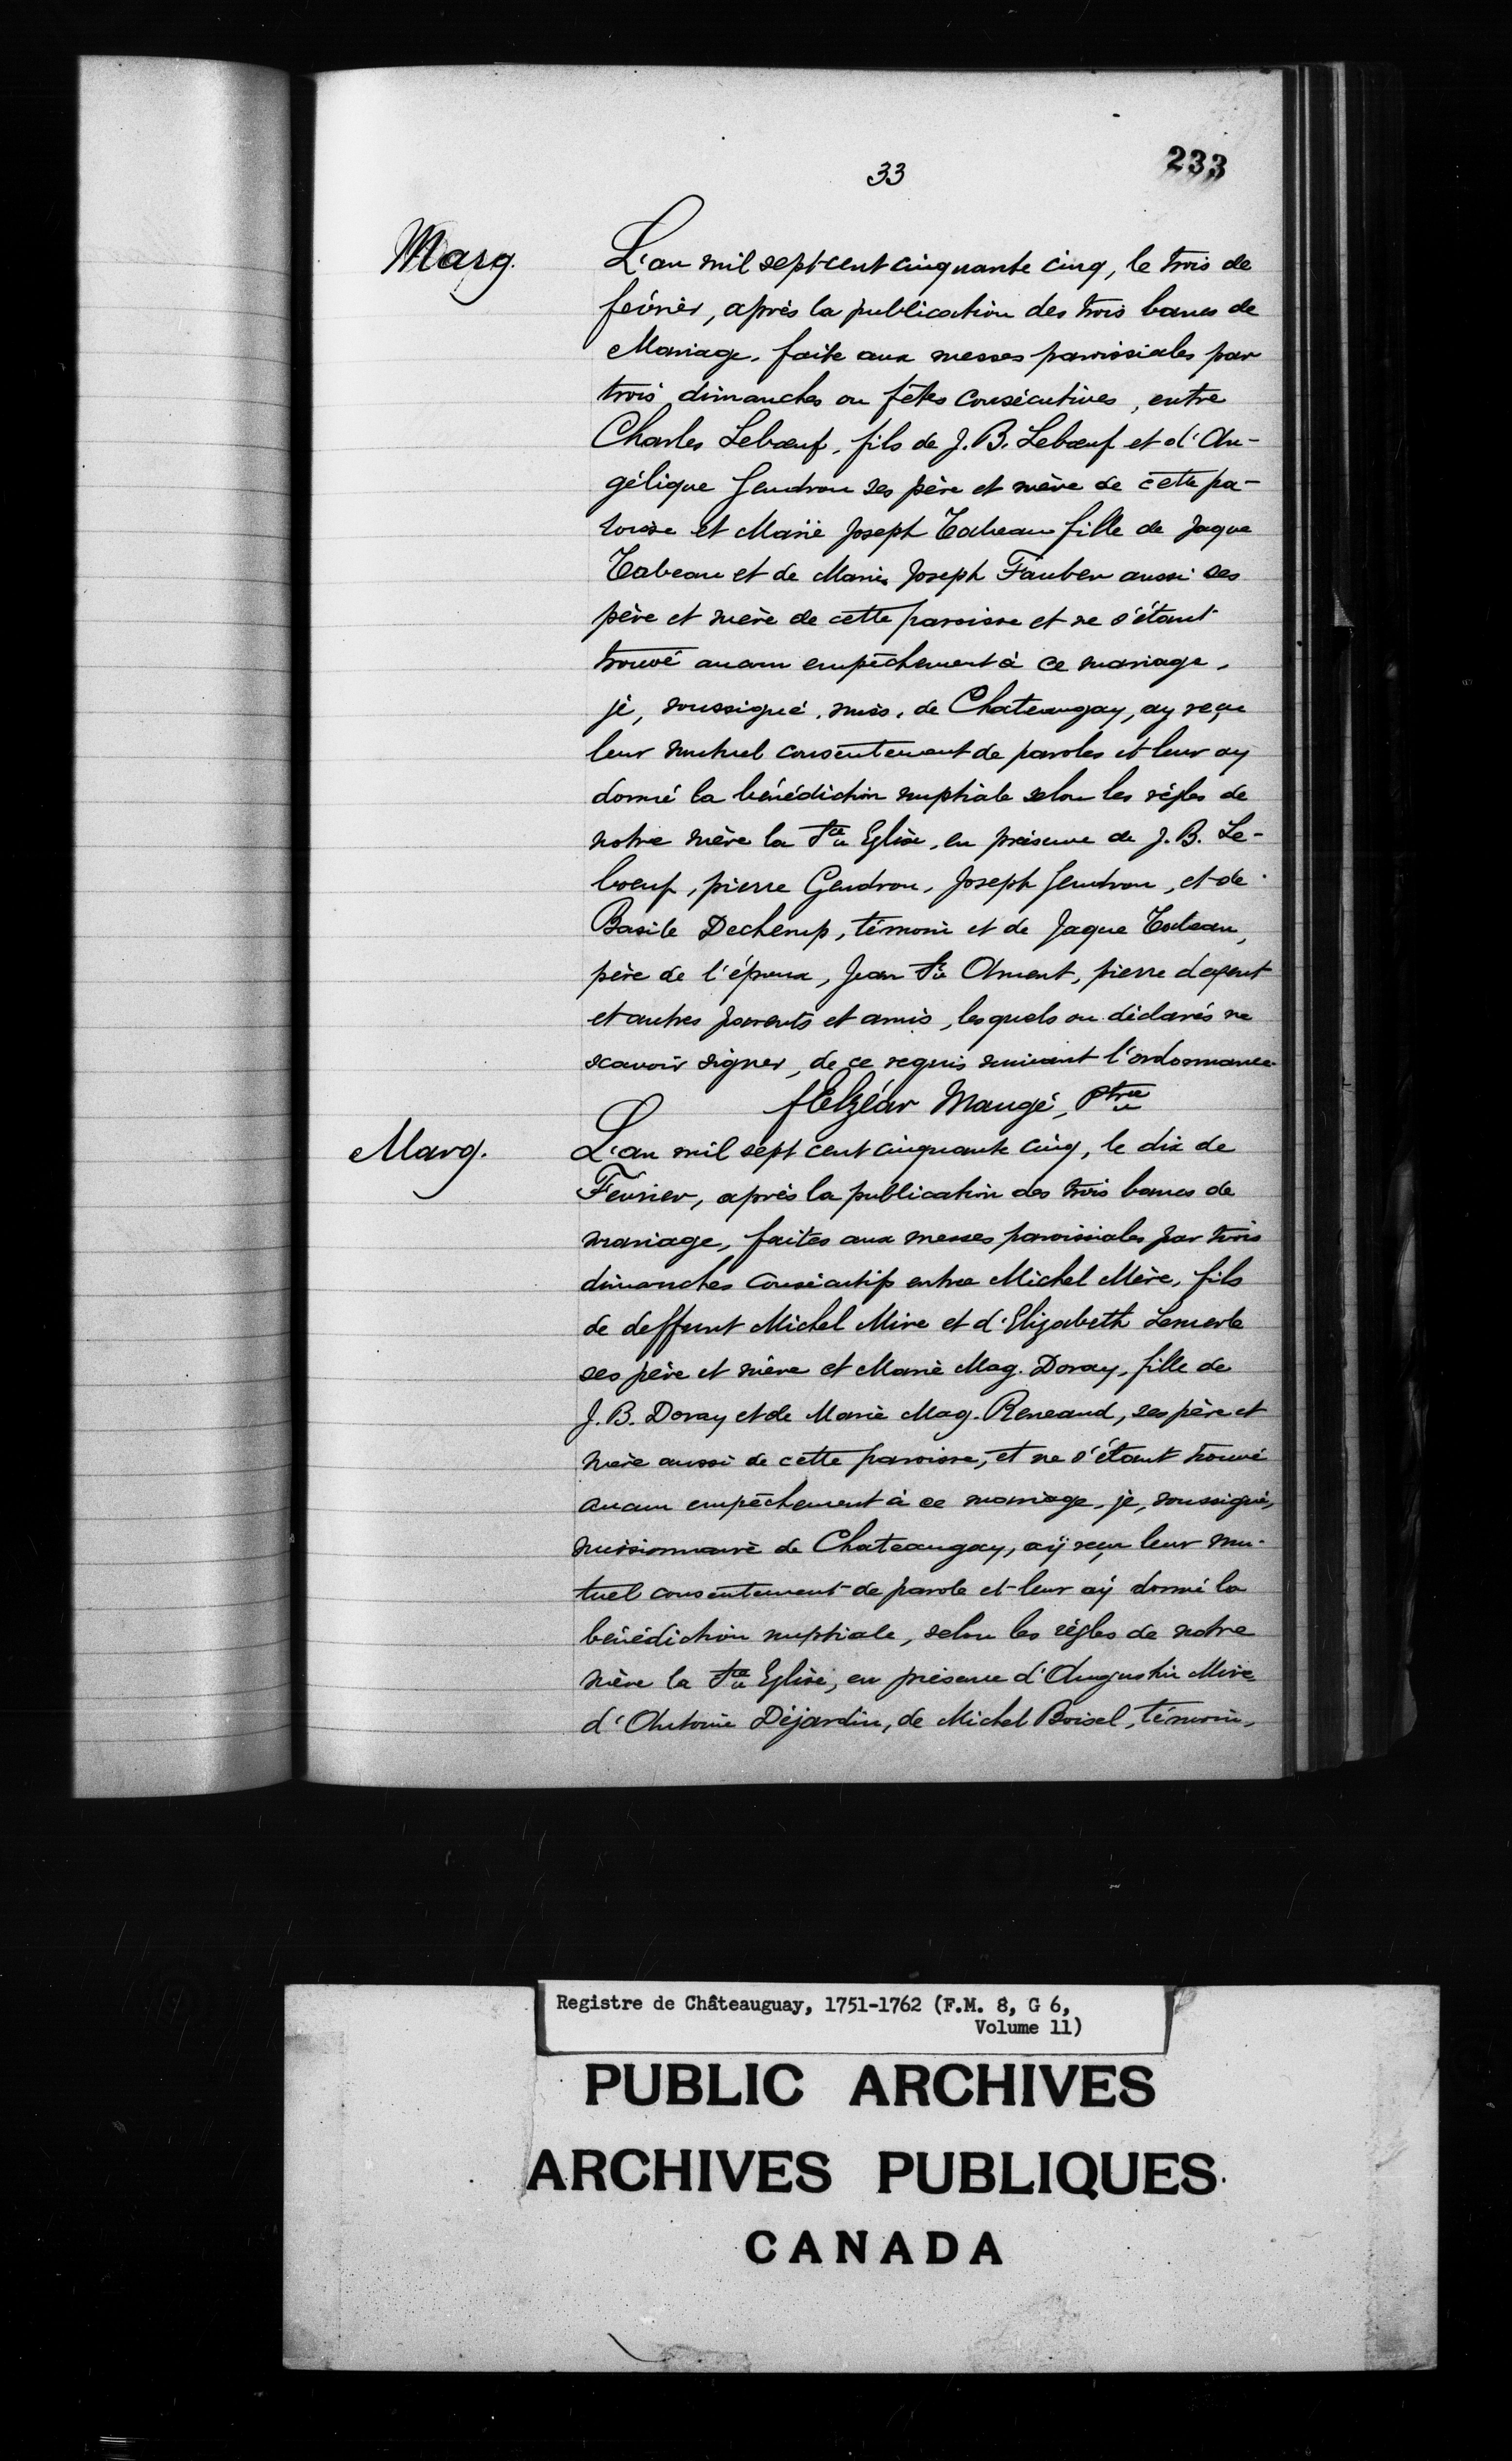 33
233
Marg.
L'an mil sept cent cinquante cinq, le trois de
février, après la publication des trois bancs de
Mariage, faite aux messes paroissiales par
trois dimanches ou fêtes consécutives, entre
Charles Lebœuf, fils de J. B. Lebœuf et d'An-
gélique Gendron ses père et mère de cette pa-
roisse et Marie Joseph Tabeau fille de Jaque
Tabeau et de Marie Joseph Fauber aussi ses
père et mère de cette paroisse et ne s'étant
trouvé aucun empêchement à ce mariage,
je, soussigné, miss. de Chateaugay, ay reçu
leur mutuel consentement de paroles et leur ay
donné la bénédiction nuptiale selon les règles de
notre mère la Ste Eglise, en présence de J. B. Le-
boeuf, pierre Gendron, Joseph Gendron, et de
Basile Dechemp, témoin et de Jaque Tabeau,
père de l'époux, Jean Ament, pierre
et autres parents et amis, lesquels on déclarés ne
scavoir signer, de ce requis suivant l'ordonnance
f Elzéar Maugé, Ptre
Marg.
L'an mil sept cent cinquante cinq, le dix de
Février, après la publication des trois bancs de
mariage, faites aux messes paroissiales par trois
dimanches consécutifs entre Michel Mère, fils
de deffunt Michel Mire et d'Elizabeth Lemerle
ses père et mère et Marie Mag. Doray, fille de
J. B. Doray et de Marie Mag. Reneaud, ses père et
mère aussi de cette paroisse, et ne s'étant trouvé
aucun empêchement à ce mariage, je, soussigné,
missionnaire de Chateaugay, aÿ reçu leur mu-
tuel consentement de parole et leur aÿ donné la
bénédiction nuptiale, selon les règles de notre
mère la Ste Eglise, en présence d'Augustin Mire
d'Antoine Déjardin, de Michel Boisel, témoin,
Registre de Châteauguay, 1751-1762 (F.M. 8, G 6,
Volume 11)
PUBLIC ARCHIVES
ARCHIVES PUBLIQUES
CANADA